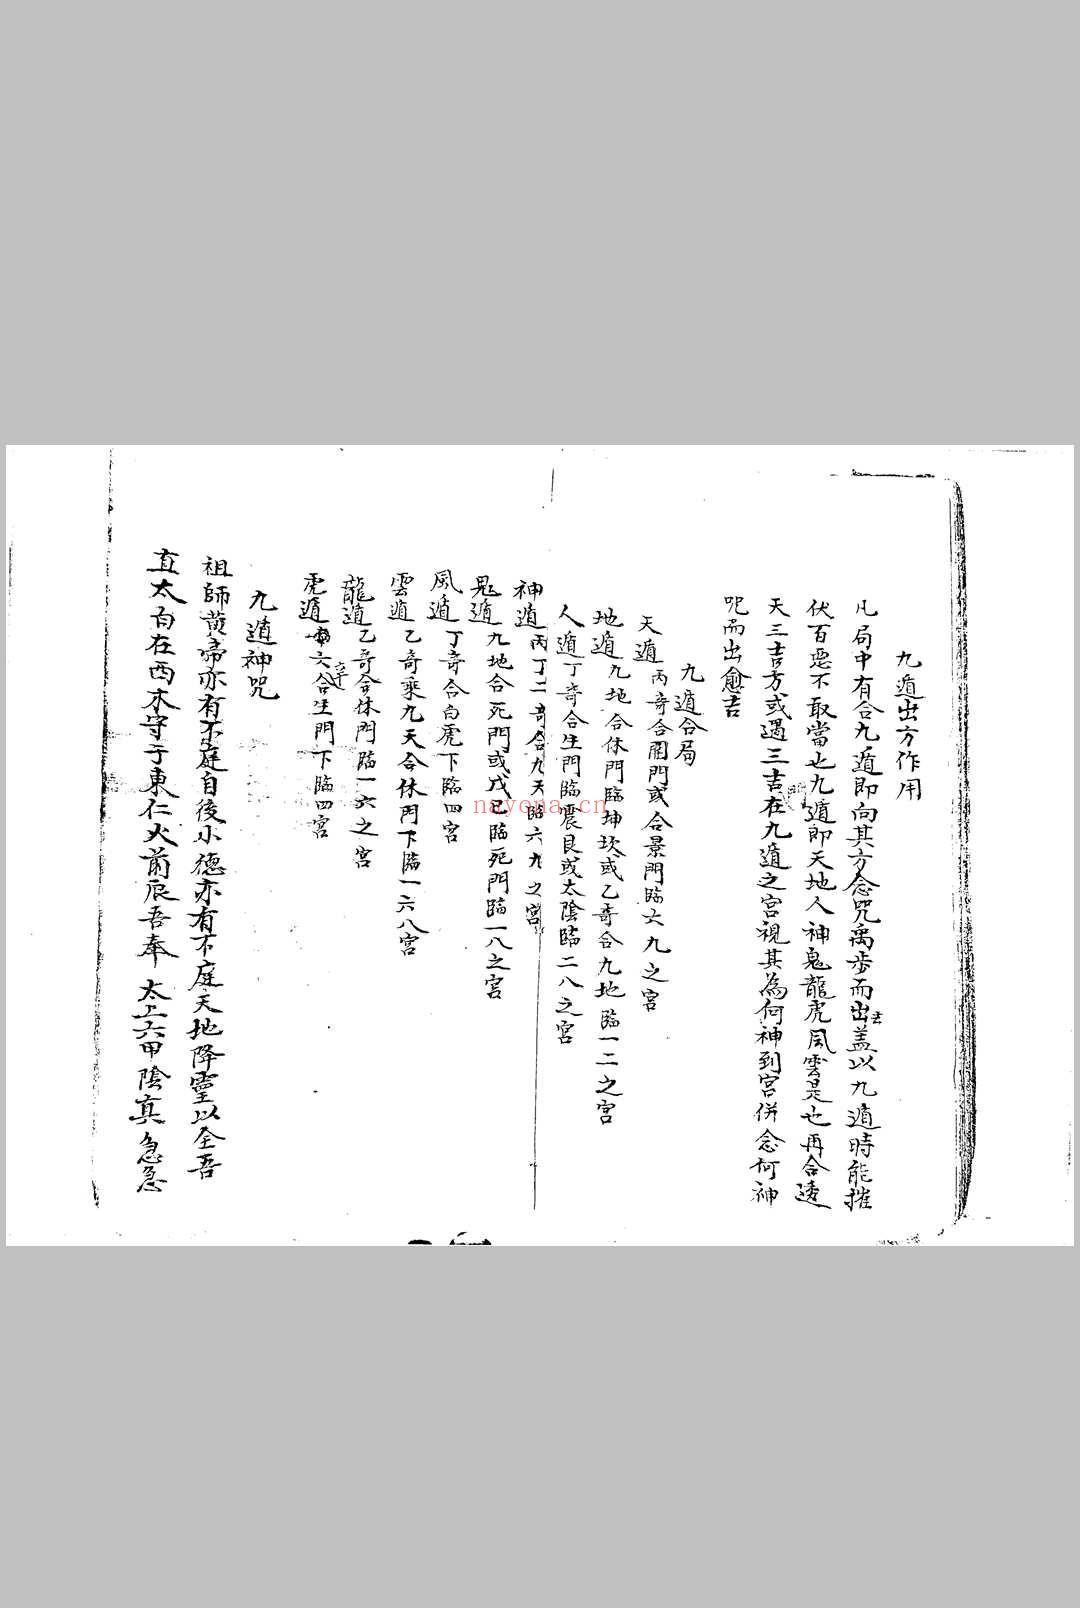 九遁出方作用
凡局中有合九遁即向其方念咒禹步而出去盖以九遁時能摧
伏百惡不取當也九遁即天地人神鬼龍虎風雲是也再合透
天三吉方或遇三吉門在九遁之宮視其為何神到宮併念何神
咒而出愈吉
九遁合局
天遁丙奇合開門或合景門臨六九之宮
地遁九地合休門臨坤坎或乙奇合九地臨一二之宮
人遁丁奇合生門臨震艮或太陰臨二八之宮
神遁丙丁二奇合九天臨六九之宮
鬼遁九地合死門或戊己臨死門臨一八之宮
風遁丁奇合白虎下臨四宮
雲遁乙奇乘九天合休門下臨一六八宮
龍遁乙奇合休門臨一六之宮
虎遁辛六合生門下臨四宮
九遁神咒
祖師黄帝亦有不庭自後小德亦有不庭天地降靈以全吾
直太白在西木守于東仁火前辰吾奉太上六甲陰真急急
nayona.cn